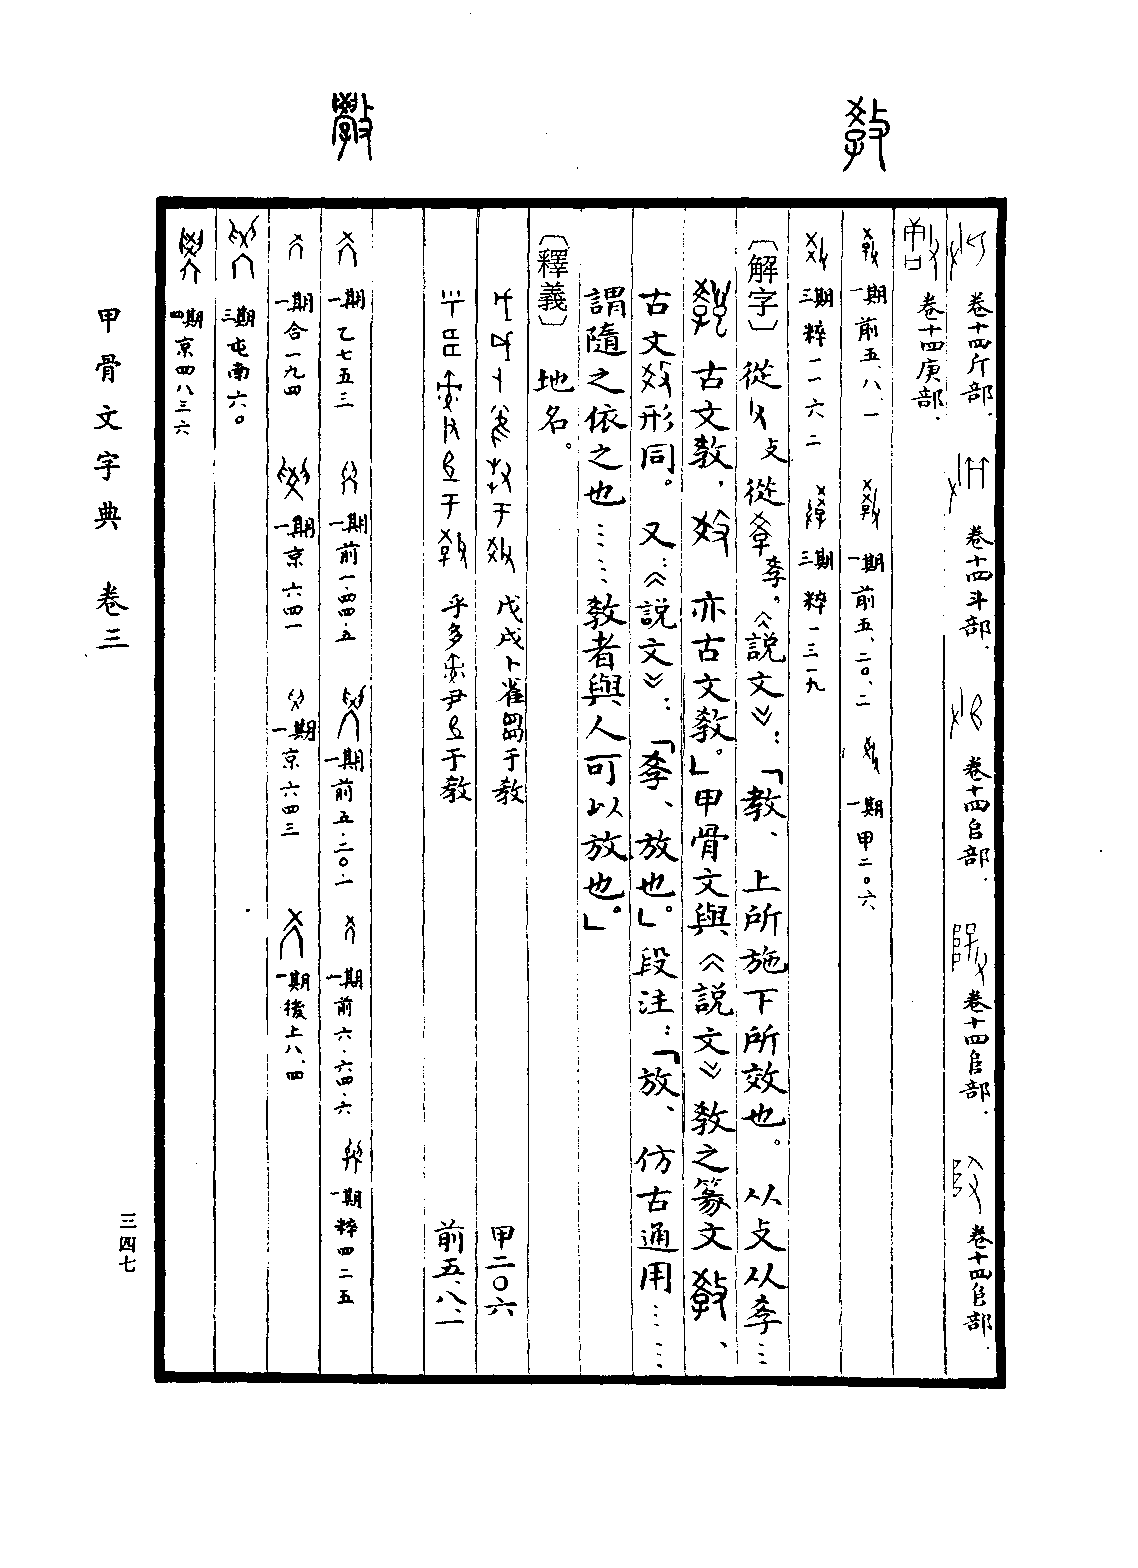 卷十四斤部. 卷十四斗部. 卷十四𠂤部. 卷十四𨸏部. 卷十四𨸏部.
卷十四庚部.
教
一期 前五.八.一 一期 前五.二〇.二 一期 甲二〇六
三期 粹一一六二 三期 粹一三一九
〔解字〕從攴從𡥈。《說文》：「教、上所施下所效也。从攴从𡥈……
古文教，亦古文教。」甲骨文與《說文》教之篆文、
古文形同。又：《說文》：「𡥈、放也。」段注：「放、仿古通用……
謂隨之依之也……教者與人可以放也。」
〔釋義〕地名。
戊戌卜雀芻于教 甲二〇六
乎多尹于教 前五.八.一
斆
一期 乙七五三 一期 前一.四四.五 一期 前五.二〇.一 一期 前六.六四.六 一期 粹四二五
一期 合一九四 一期 京六四一 一期 京六四三 一期 後上八.四
三期 屯南六〇
四期 京四八三六
甲骨文字典 卷三
三四七